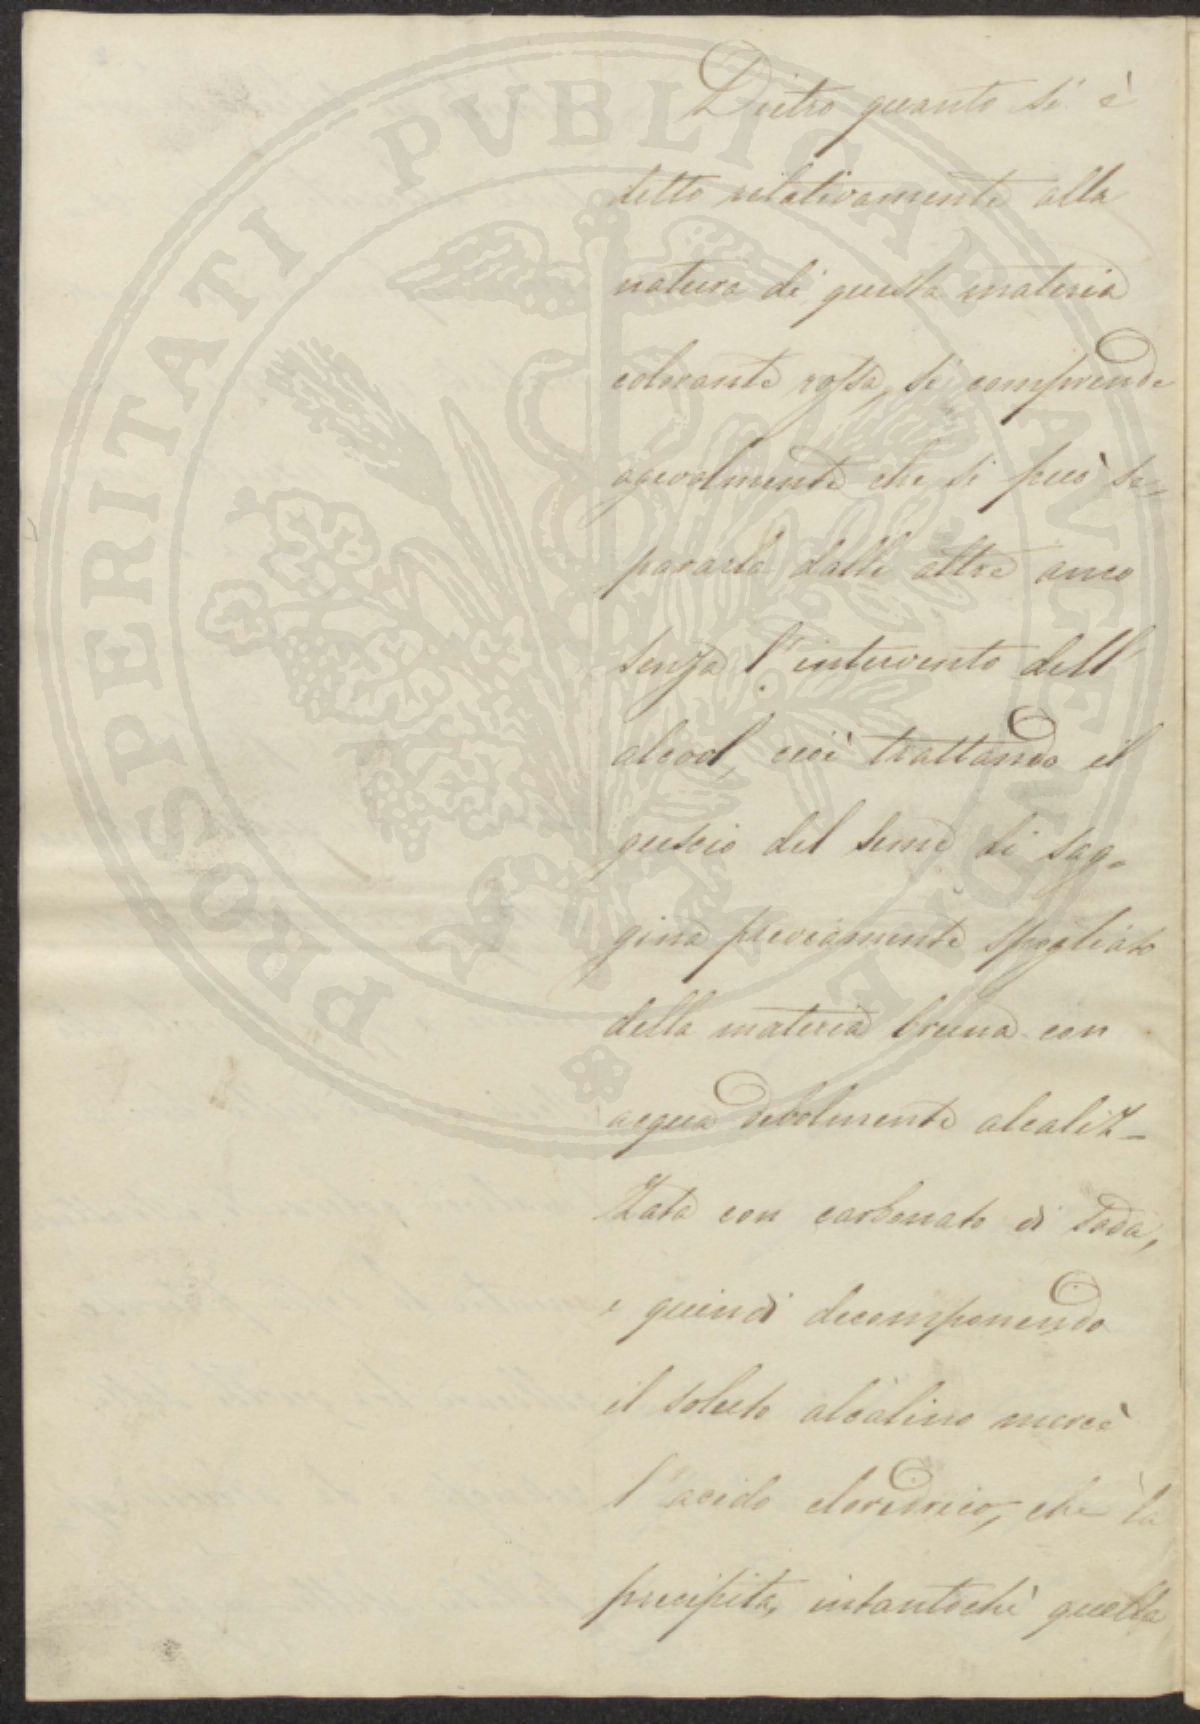 Dietro quanto si è
detto relativamente alla
natura di questa materia
colorante rossa, si comprende
agevolmente che si può se-
pararla dalle altre anco
senza l'intervento dell'
alcool, cioè trattando il
guscio del seme di sag-
gina previamente spogliato
della materia bruna con
acqua debolmente alcaliz-
zata con carbonato di soda,
e quindi decomponendo
il soluto alcalino mercè
l'acido cloridrico, che la
precipita, intantochè quella
PROSPERITATI PVBLICAE AVGENDAE